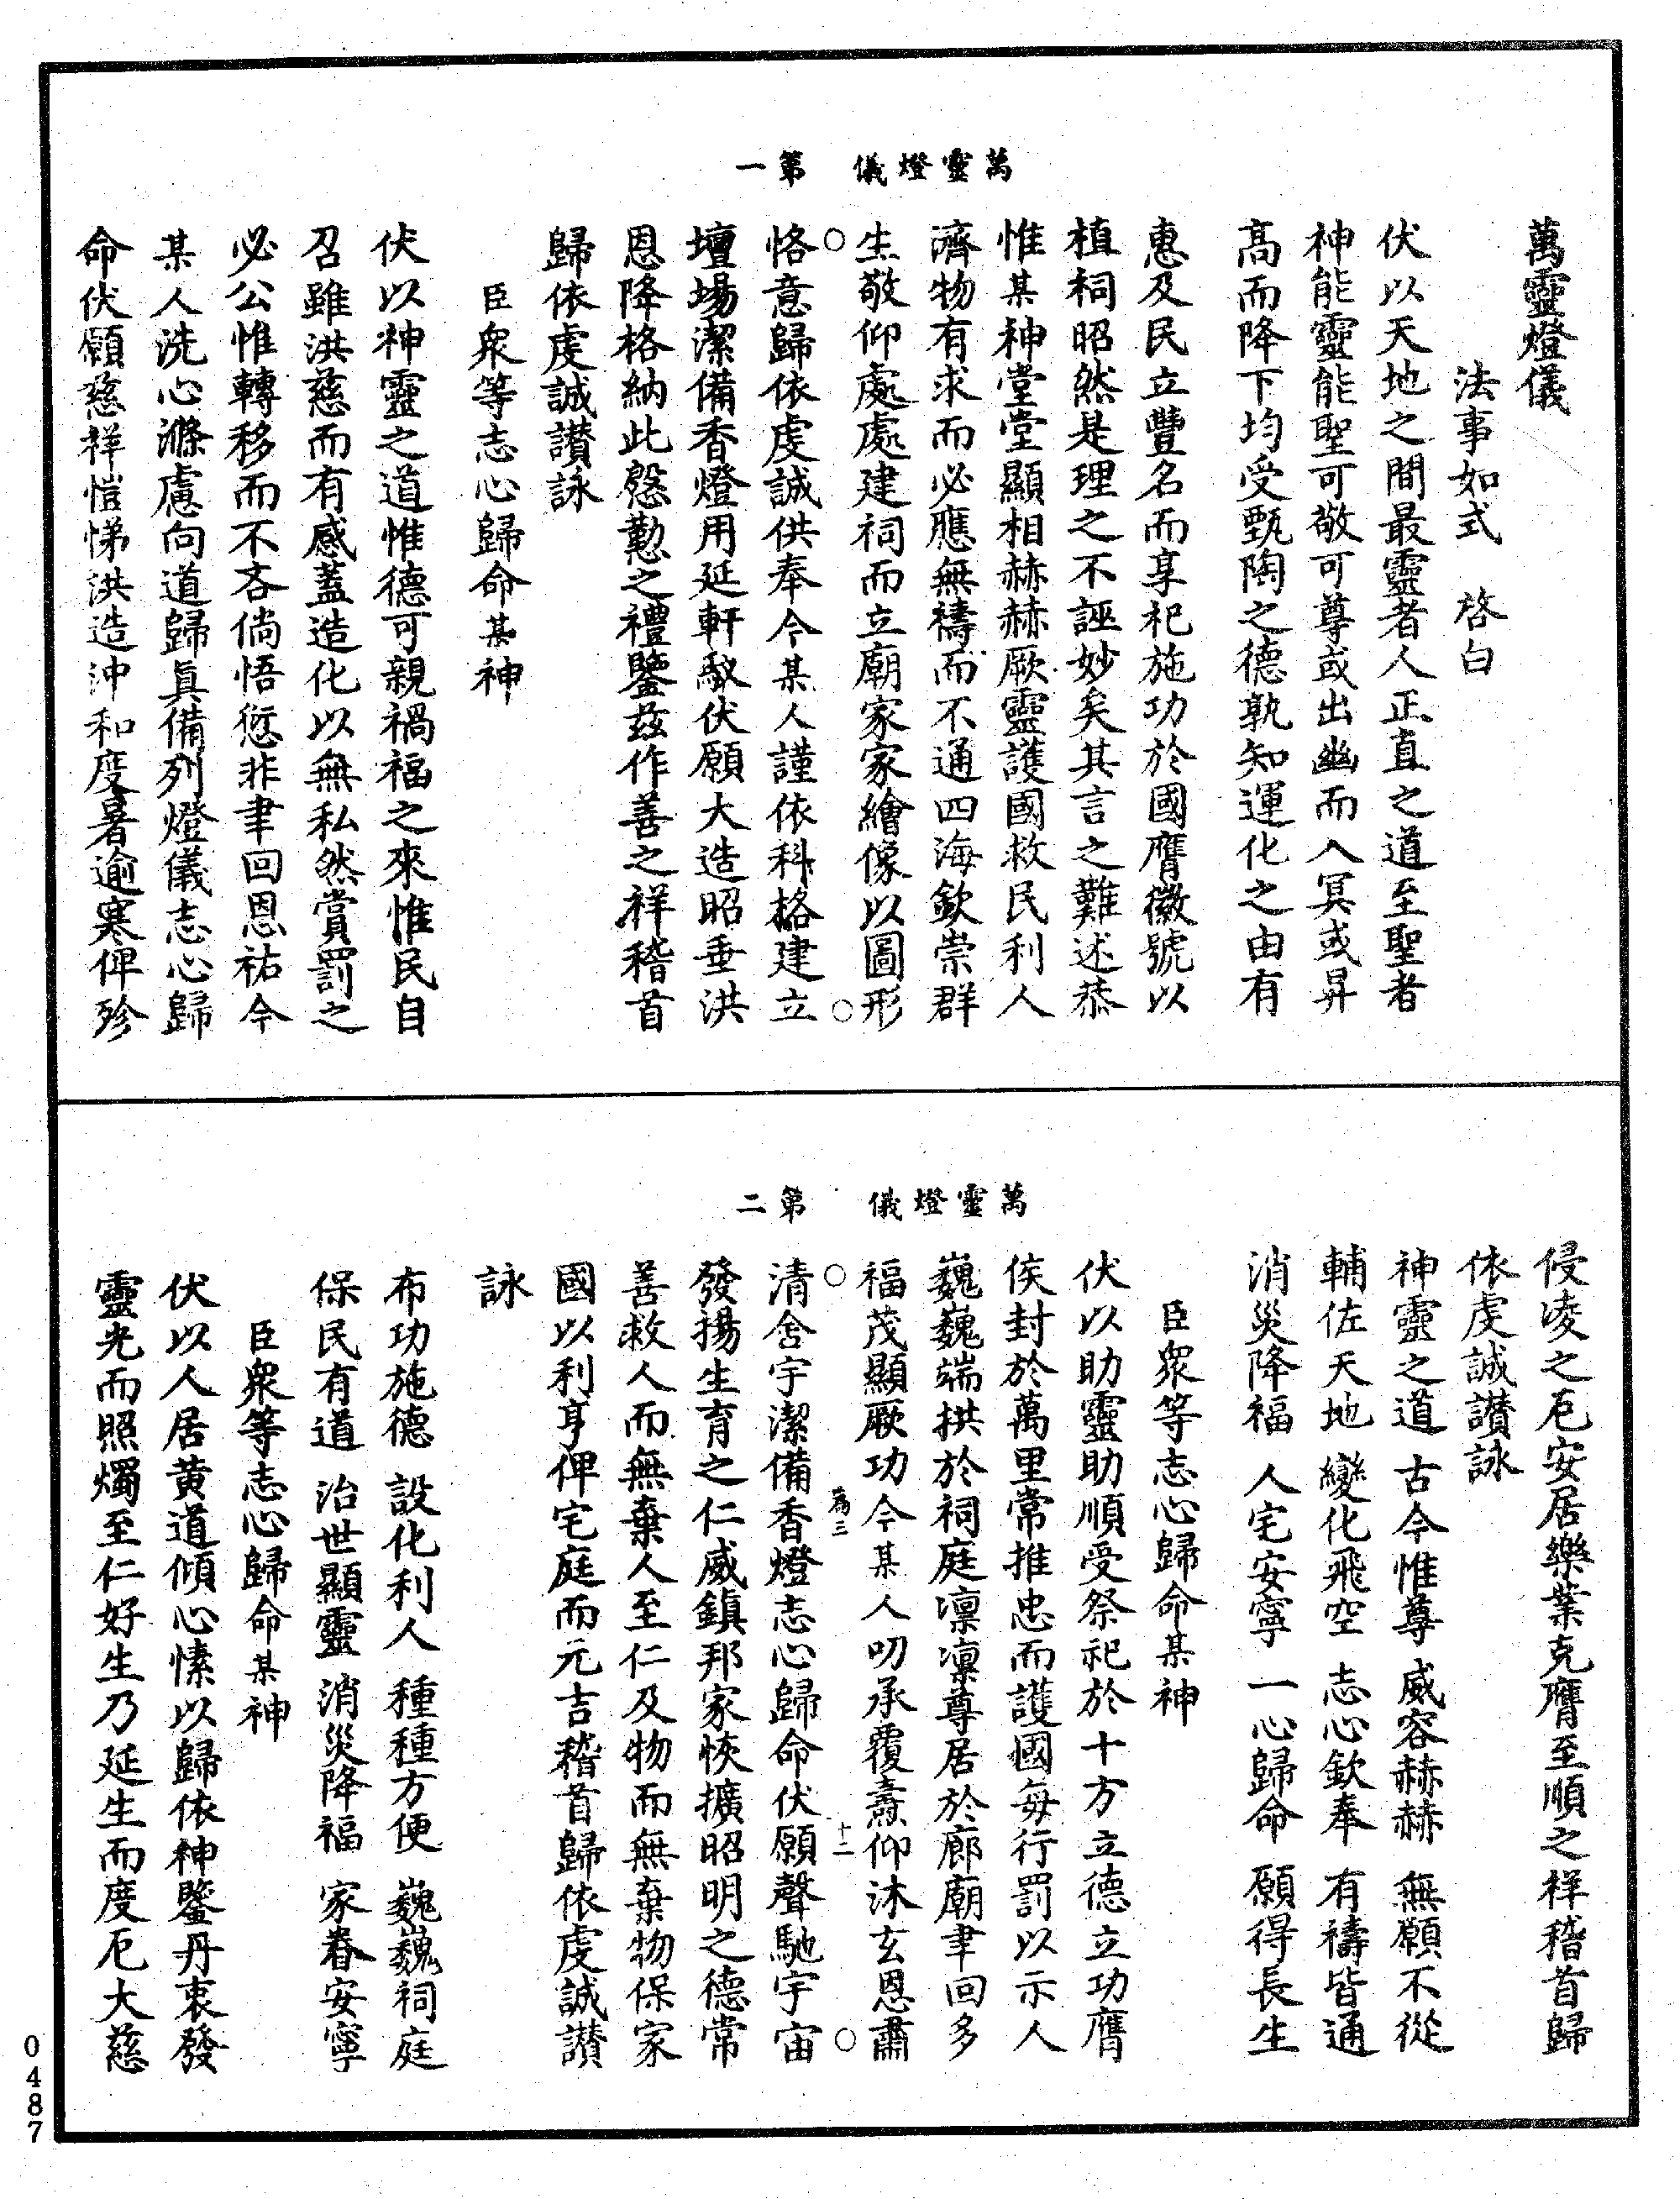 萬靈燈儀　第一
萬靈燈儀
法事如式　啓白
伏以天地之間最靈者人正直之道至聖者
神能靈能聖可敬可尊或出幽而入冥或昇
高而降下均受甄陶之德孰知運化之由有
惠及民立豐名而享祀施功於國膺徽號以
植祠昭然是理之不誣妙矣其言之難述恭
惟某神堂堂顯相赫赫厥靈護國救民利人
濟物有求而必應無禱而不通四海欽崇群
生敬仰處處建祠而立廟家家繪像以圖形
○○
恪意歸依虔誠供奉今某人謹依科格建立
壇場潔備香燈用延軒馭伏願大造昭垂洪
恩降格納此慇懃之禮鑒茲作善之祥稽首
歸依虔誠讚詠
臣衆等志心歸命某神
伏以神靈之道惟德可親禍福之來惟民自
召雖洪慈而有感蓋造化以無私然賞罰之
必公惟轉移而不吝倘悟愆非聿回恩祐今
某人洗心滌慮向道歸眞備列燈儀志心歸
命伏願慈祥愷悌洪造沖和度暑逾寒俾殄
萬靈燈儀　第二
侵凌之厄安居樂業克膺至順之祥稽首歸
依虔誠讚詠
神靈之道　古今惟尊　威容赫赫　無願不從
輔佐天地　變化飛空　志心欽奉　有禱皆通
消災降福　人宅安寧　一心歸命　願得長生
臣衆等志心歸命某神
伏以助靈助順受祭祀於十方立德立功膺
侯封於萬里常推忠而護國每行罰以示人
巍巍端拱於祠庭凛凛尊居於廊廟聿回多
福茂顯厥功今某人叨承覆燾仰沐玄恩肅
○爲三　十二○
清舍宇潔備香燈志心歸命伏願聲馳宇宙
發揚生育之仁威鎮邦家恢擴昭明之德常
善救人而無棄人至仁及物而無棄物保家
國以利亨俾宅庭而元吉稽首歸依虔誠讚
詠
布功施德　設化利人　種種方便　巍巍祠庭
保民有道　治世顯靈　消災降福　家眷安寧
臣衆等志心歸命某神
伏以人居黄道傾心愫以歸依神鑒丹衷發
靈光而照燭至仁好生乃延生而度厄大慈
0487